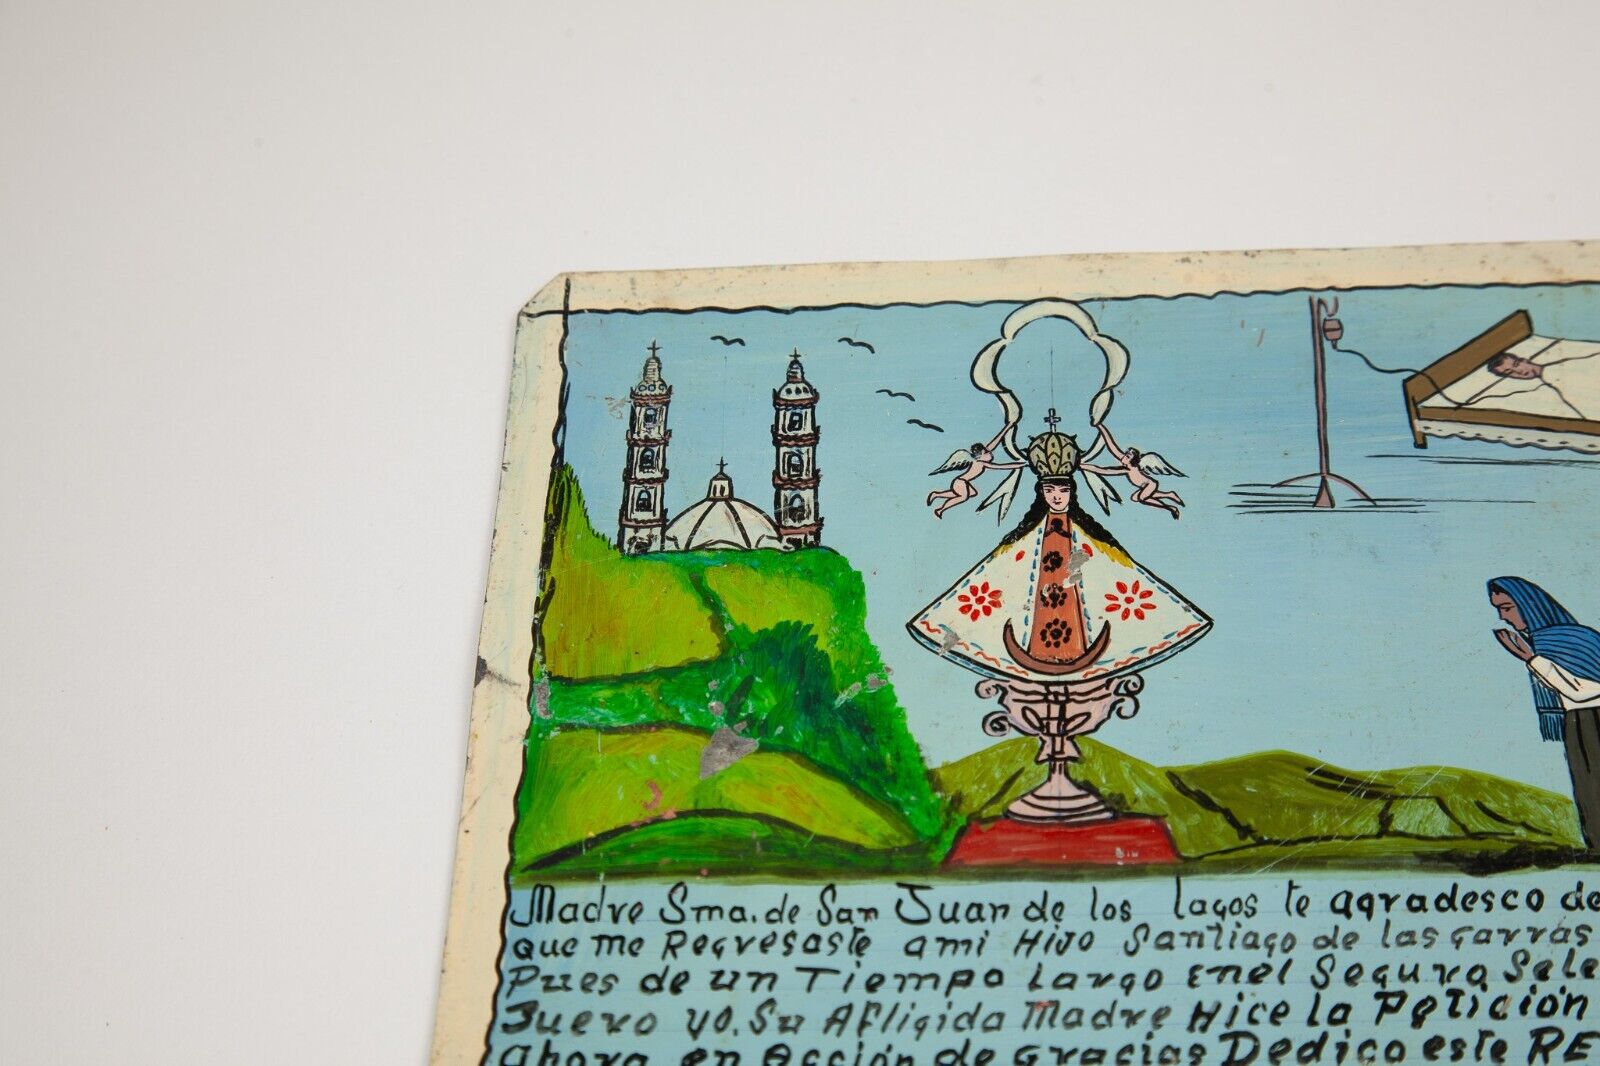 Madre Sma. de San Juan de los Lagos te agradesco de
que me Regresaste ami Hijo Santiago de las garras
Pues de un Tiempo Largo Enel Seguro Sele
Juevo yo. Su Afligida Madre Hice la Petición
ahora en acción de Gracias Dedico este RE